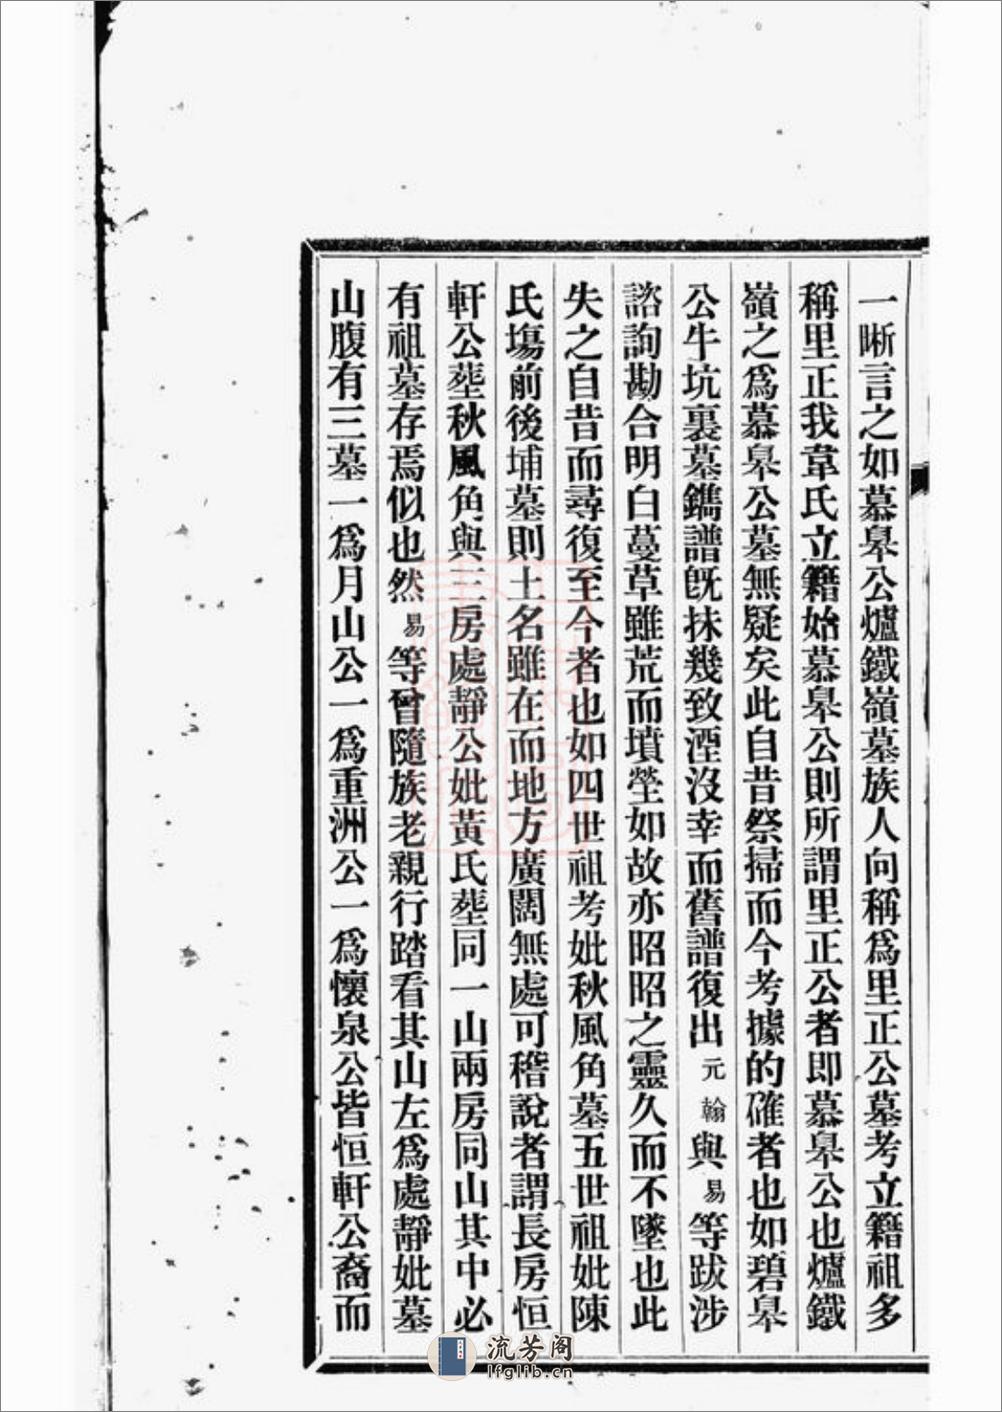 一晰言之如慕皋公爐鐵嶺墓族人向稱爲里正公墓考立籍祖多
稱里正我韋氏立籍始慕皋公則所謂里正公者即慕皋公也爐鐵
嶺之爲慕皋公墓無疑矣此自昔祭掃而今考據的確者也如碧皋
公牛坑裏墓鐫譜旣抹幾致湮沒幸而舊譜復出元翰與易等跋涉
諮詢勘合明白蔓草雖荒而墳塋如故亦昭昭之靈久而不墜也此
失之自昔而尋復至今者也如四世祖考妣秋風角墓五世祖妣陳
氏塲前後埔墓則土名雖在而地方廣闊無處可稽說者謂長房恒
軒公葬秋風角與三房處靜公妣黃氏葬同一山兩房同山其中必
有祖墓存焉似也然易等曾隨族老親行踏看其山左爲處靜妣墓
山腹有三墓一爲月山公一爲重洲公一爲懷泉公皆恒軒公裔而
流芳阁
lfglib.cn